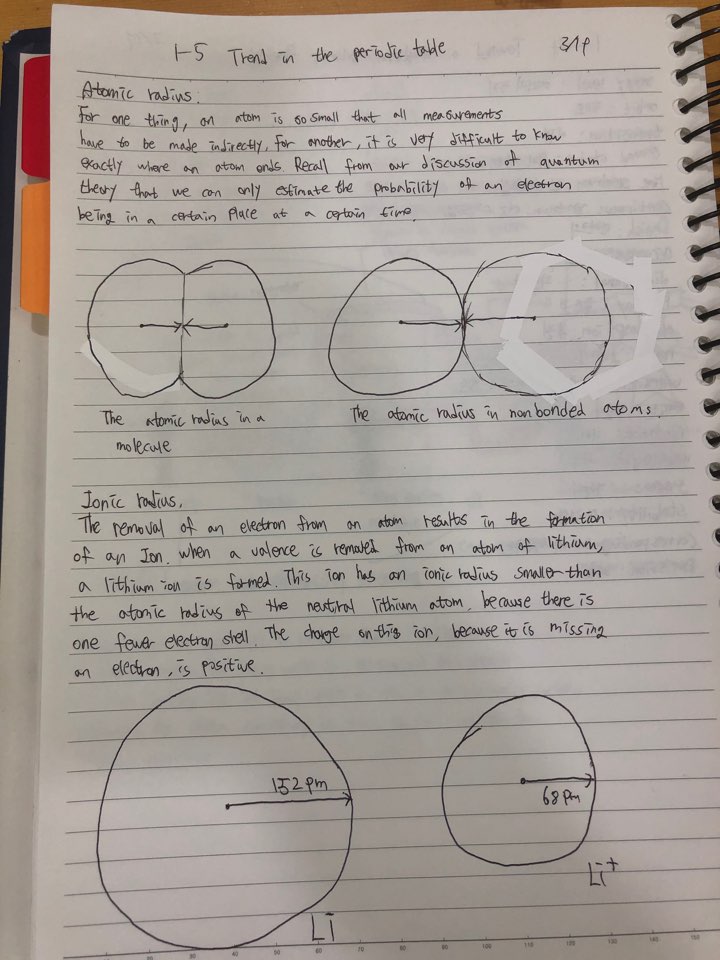 1-5 Trend in the periodic table
Atomic radius:
For one thing, an atom is so small that all measurements
have to be made indirectly, for another, it is very difficult to know
exactly where an atom ends. Recall from our discussion of quantum
theory that we can only estimate the probability of an electron
being in a certain place at a certain time.
The atomic radius in a
molecule
The atomic radius in nonbonded atoms.
Ionic radius.
The removal of an electron from an atom results in the formation
of an Ion. when a valence is removed from an atom of lithium,
a lithium ion is formed. This ion has an ionic radius smaller than
the atomic radius of the neutral lithium atom, because there is
one fewer electron shell. The charge on this ion, because it is missing
an electron, is positive.
152 pm
68 pm
Li
Li+